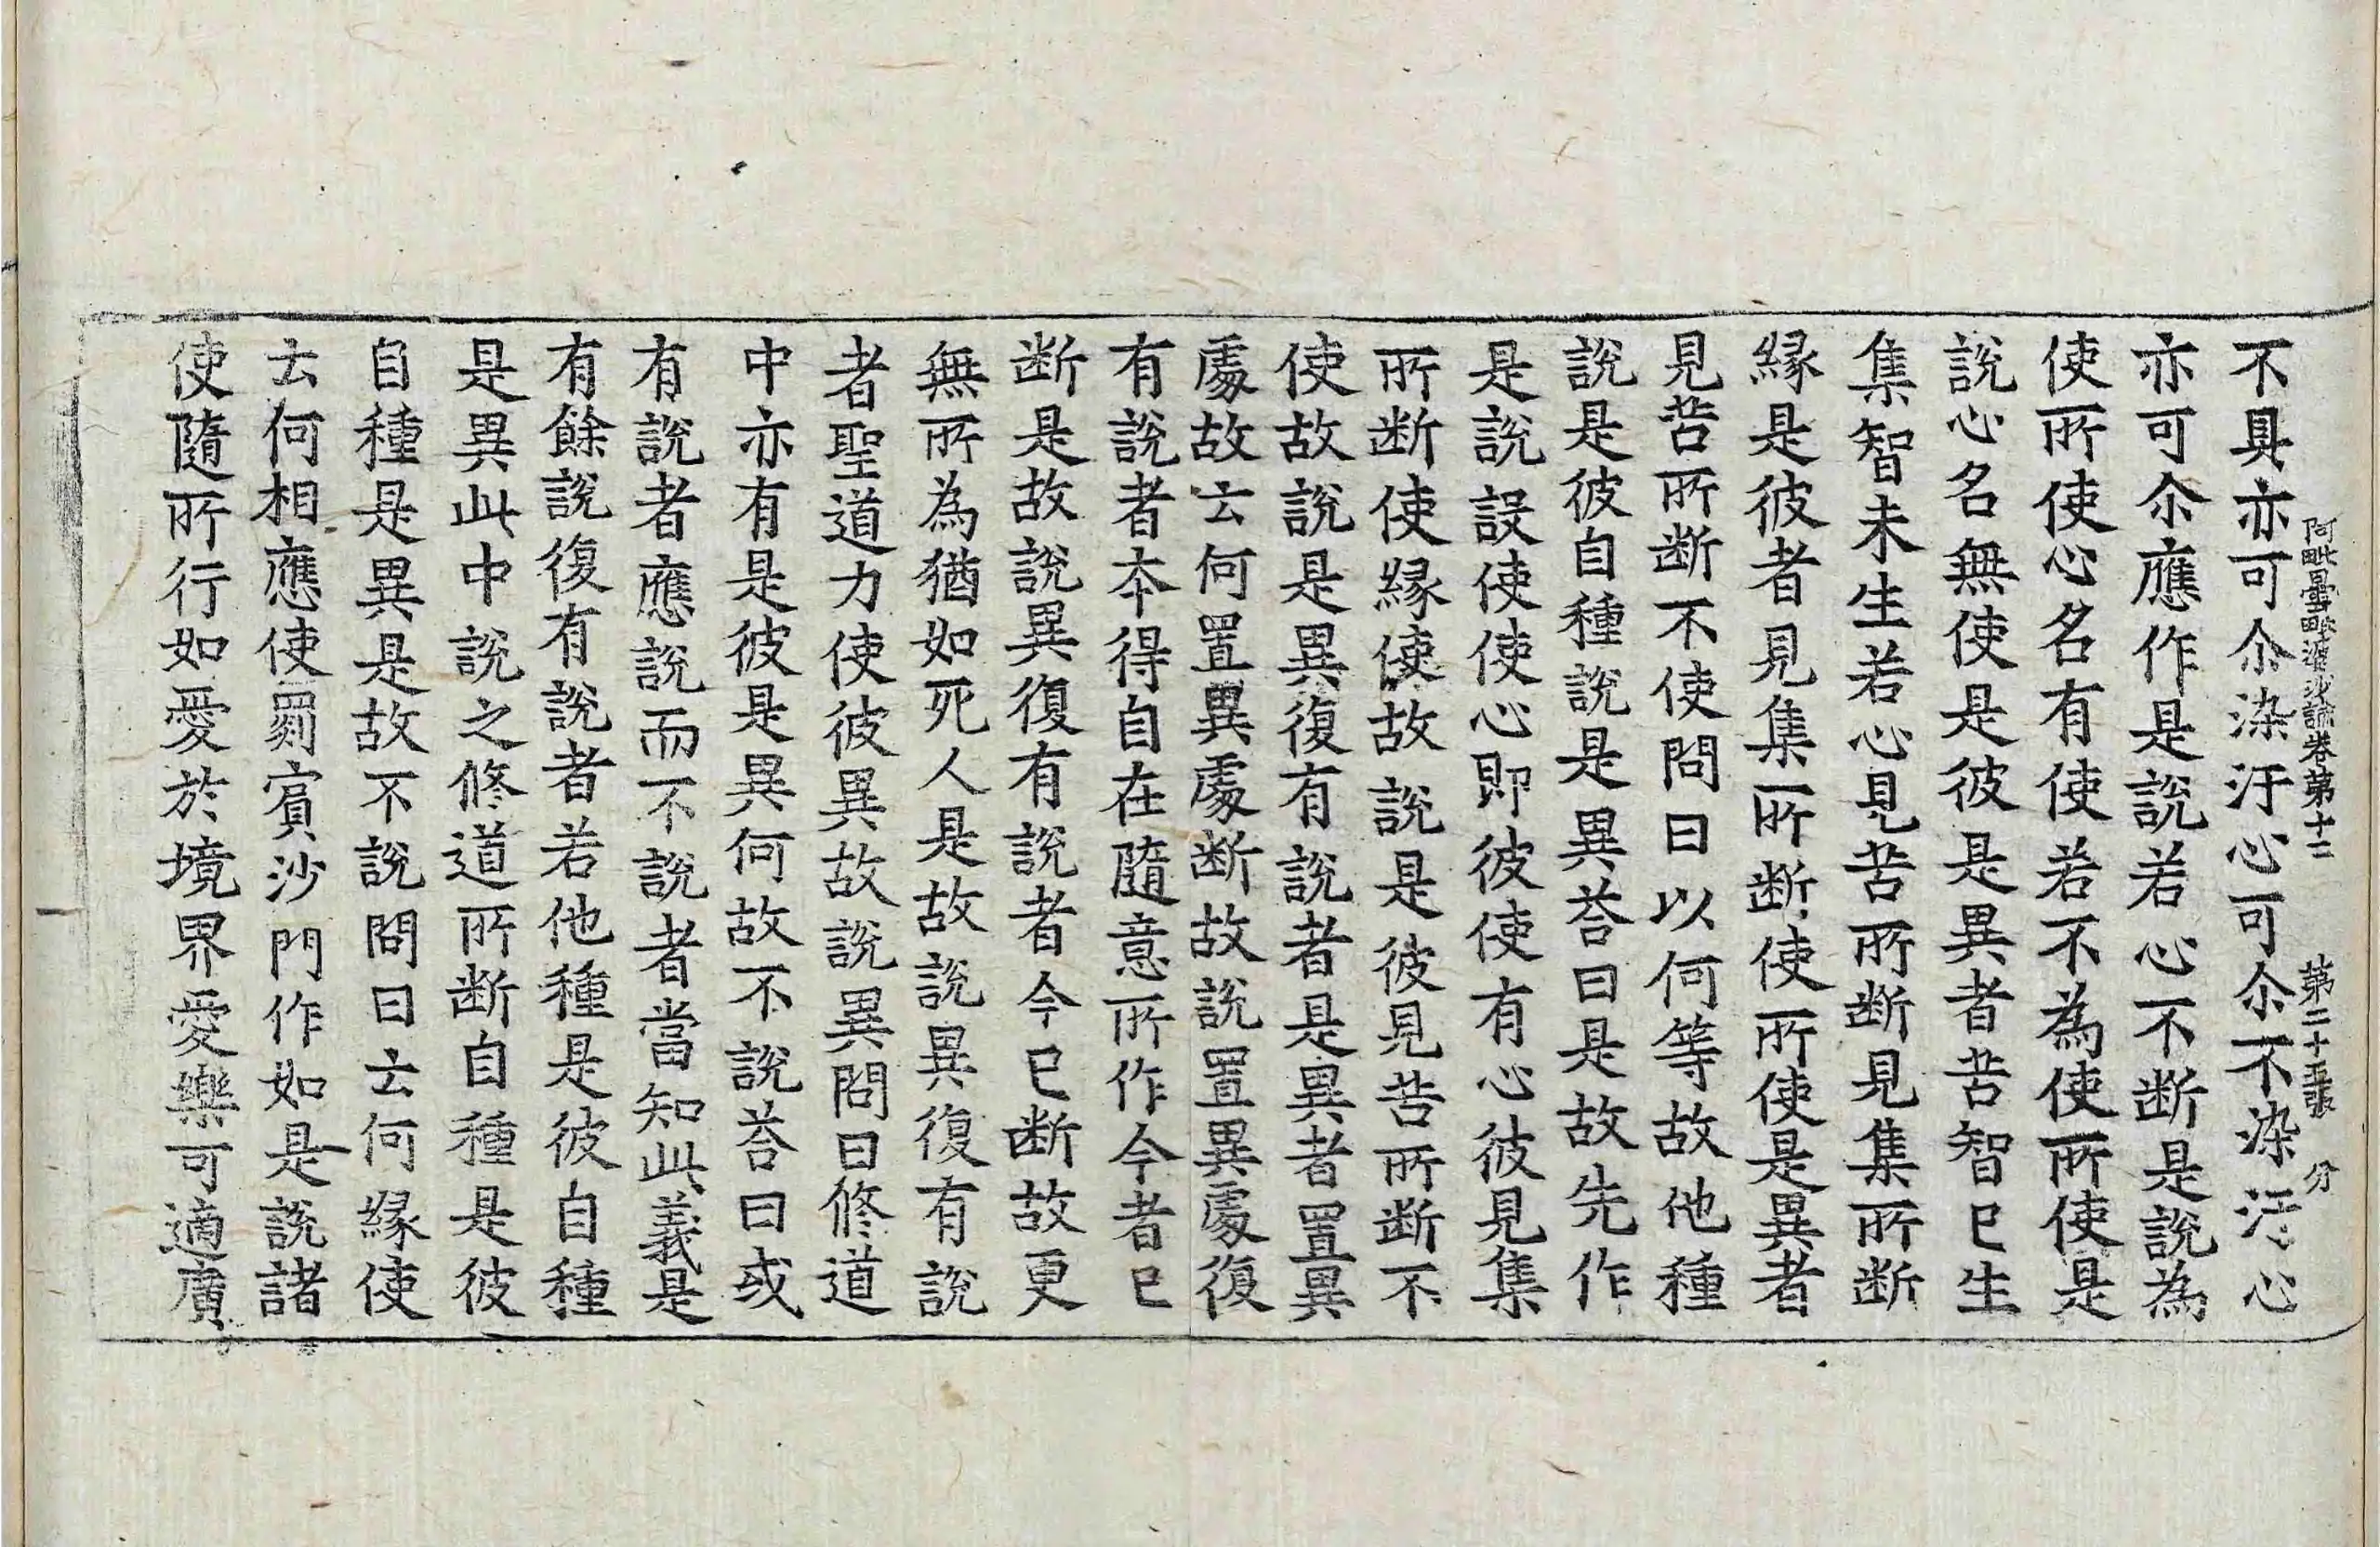 不具亦可尒染汙心可尒不染汙心
阿毗曇毗婆沙論卷第十二 第二十五張 分
亦可尒應作是說若心不断是說為
使所使心名有使若不為使所使是
說心名無使是彼是異者苦智已生
集智未生若心見苦所断見集所断
緣是彼者見集所断使所使是異者
見苦所断不使問曰以何等故他種
說是彼自種說是異荅曰是故先作
是說設使使心即彼使有心彼見集
所断使緣使故說是彼見苦所断不
使故說是異復有說者是異者置異
處故云何置異處断故說置異處復
有說者本得自在隨意所作今者已
断是故說異復有說者今已断故更
無所為猶如死人是故說異復有說
者聖道力使彼異故說異問曰修道
中亦有是彼是異何故不說荅曰或
有說者應說而不說者當知此義是
有餘說復有說者若他種是彼自種
是異此中說之修道所断自種是彼
自種是異是故不說問曰云何緣使
云何相應使罽賓沙門作如是說諸
使隨所行如愛於境界愛樂可適廣